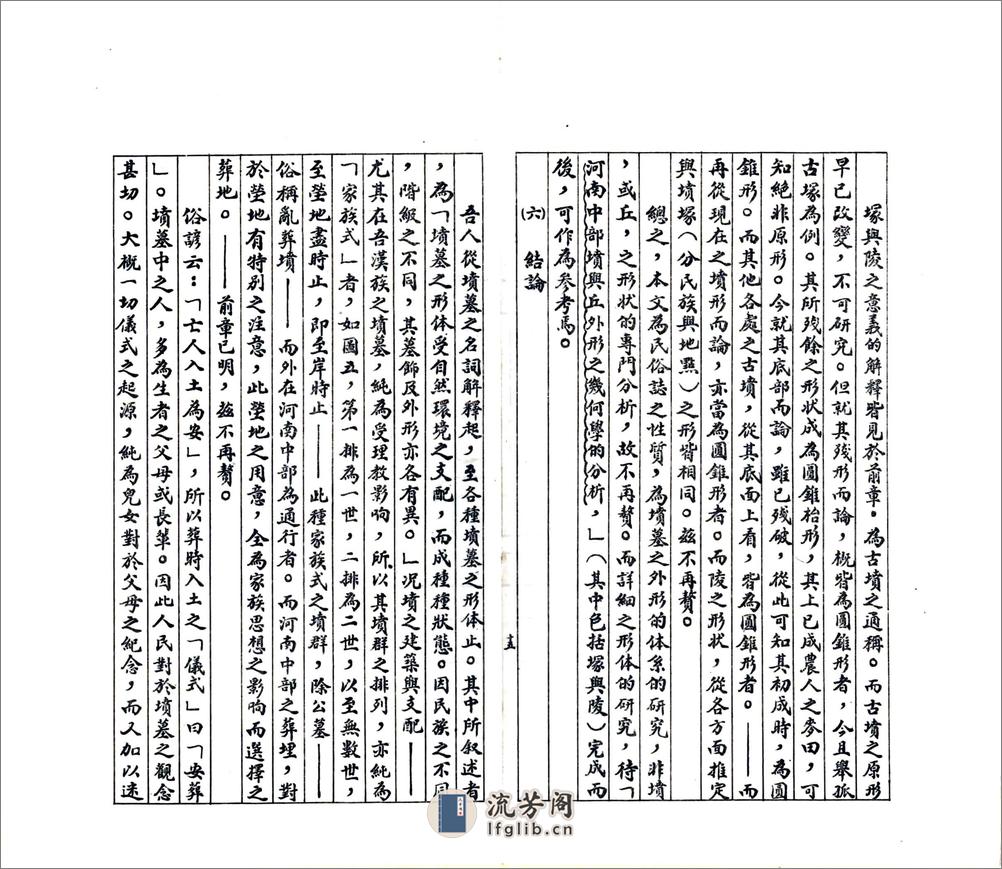 塚與陵之意義的解釋皆見於前章。為古墳之通稱。而古墳之原形
早已改變，不可研究。但就其殘形而論，概皆為圓錐形者，今且舉孤
古塚為例。其所殘餘之形狀成為圓錐枱形，其上已成農人之麥田，可
知絕非原形。今就其底部而論，雖已殘破，從此可知其初成時，為圓
錐形。而其他各處之古墳，從其底面上看，皆為圓錐形者。——而
再從現在之墳形而論，亦當為圓錐形者。而陵之形狀，從各方面推定
與墳塚（分民族與地點）之形皆相同。茲不再贅。
總之，本文為民俗誌之性質，為墳墓之外形的体系的研究，非墳
，或丘，之形狀的專門分析，故不再贅。而詳細之形体的研究，待「
河南中部墳與丘外形之幾何學的分析，」（其中色括塚與陵）完成而
後，可作為參考焉。
㈥　結論
十五
吾人從墳墓之名詞解釋起，至各種墳墓之形体止。其中所叙述者
，為「墳墓之形体受自然環境之支配，而成種種狀態。因民族之不同
，階級之不同，其墓飾及外形亦各有異。」况墳之建築與支配——
尤其在吾漢族之墳墓，純為受理教影响，所以其墳群之排列，亦純為
「家族式」者，如圖五，第一排為一世，二排為二世，以至無數世，
至塋地盡時止，即至岸時止——此種家族式之墳群，除公墓——
俗稱亂葬墳——而外在河南中部為通行者。而河南中部之葬埋，對
於塋地有特别之注意，此塋地之用意，全為家族思想之影响而選擇之
葬地。——前章已明，茲不再贅。
俗諺云：「亡人入土為安」，所以葬時入土之「儀式」曰「安葬
」。墳墓中之人，多為生者之父母或長輩。因此人民對於墳墓之觀念
甚切。大概一切儀式之起源，純為兒女對於父母之紀念，而又加以迷
流芳阁
lfglib.cn